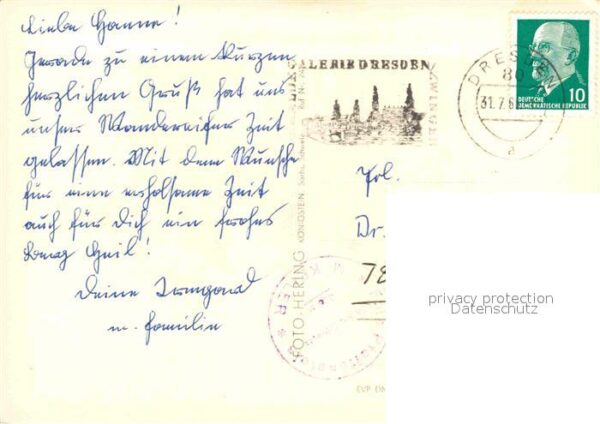 Liebe Hanne!
Gerade zu einem kurzen
herzlichen Gruß hat uns
unser Wandereifer Zeit
gelassen. Mit dem Wunsche
für eine erholsame Zeit
auch für Dich ein frohes
Berg Heil!
Deine Irmgard
m. Familie
GALERIE DRESDEN
ZWINGER
DRESDEN
80
31.7.6
a
DEUTSCHE
DEMOKRATISCHE REPUBLIK
10
FOTO-HERING KÖNIGSTEIN
Frl.
Dr.
78
privacy protection
Datenschutz